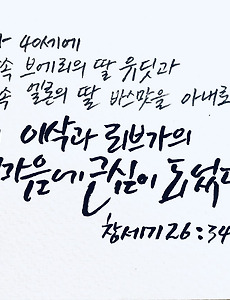 40세에
속 브에리의 딸 유딧과
속 엘론의 딸 바스맛을 아내로
이삭과 리브가의
마음에 근심이 되었
창세기 26:34